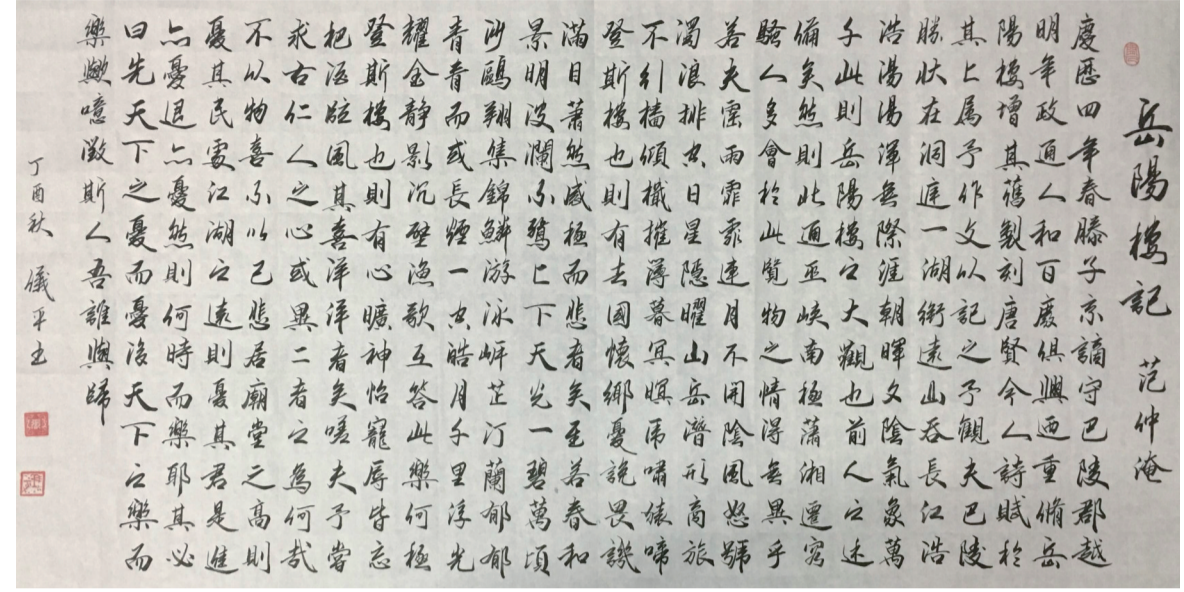 岳陽樓記 范仲淹
慶歷四年春滕子京謫守巴陵郡越
明年政通人和百廢俱興迺重脩岳
陽樓增其舊製刻唐賢今人詩賦於
其上属予作文以記之予觀夫巴陵
勝狀在洞庭一湖銜遠山吞長江浩
浩湯湯渾無際涯朝暉夕陰氣象萬
千此則岳陽樓之大觀也前人之述
備矣然則此通巫峽南極瀟湘遷客
騷人多會於此覽物之情得無異乎
若夫霪雨霏霏連月不開陰風怒號
濁浪排空日星隱曜山岳潛形商旅
不行檣傾檝摧薄暮冥暝虎嘯猿啼
登斯樓也則有去國懷鄉憂讒畏譏
滿目蕭然感極而悲者矣至若春和
景明波瀾不驚上下天光一碧萬頃
沙鷗翔集錦鱗游泳岸芷汀蘭郁郁
青青而或長煙一空皓月千里浮光
耀金靜影沉璧漁歌互答此樂何極
登斯樓也則有心曠神怡寵辱皆忘
把酒臨風其喜洋洋者矣嗟夫予嘗
求古仁人之心或異二者之為何哉
不以物喜不以己悲居廟堂之高則
憂其民處江湖之遠則憂其君是進
亦憂退亦憂然則何時而樂耶其必
曰先天下之憂而憂後天下之樂而
樂歟噫微斯人吾誰與歸
丁酉秋 儀平书